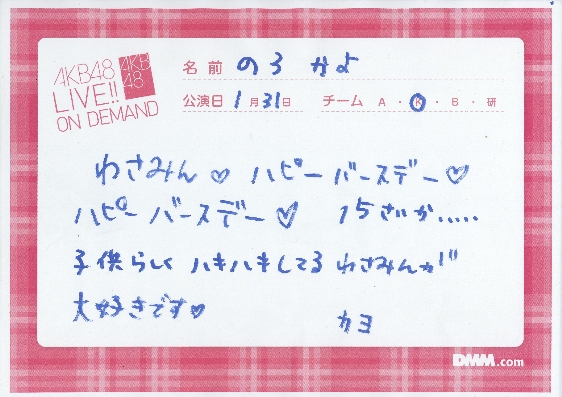 AKB48
LIVE!!
ON DEMAND
AKB
48
名前 のろ かよ
公演日 1月31日 チーム A・K・B・研
わさみん♡ ハピーバースデー♡
ハピーバースデー♡ 15さいか.....
子供らしく ハキハキしてる わさみんが
大好きです♡
カヨ
DMM.com